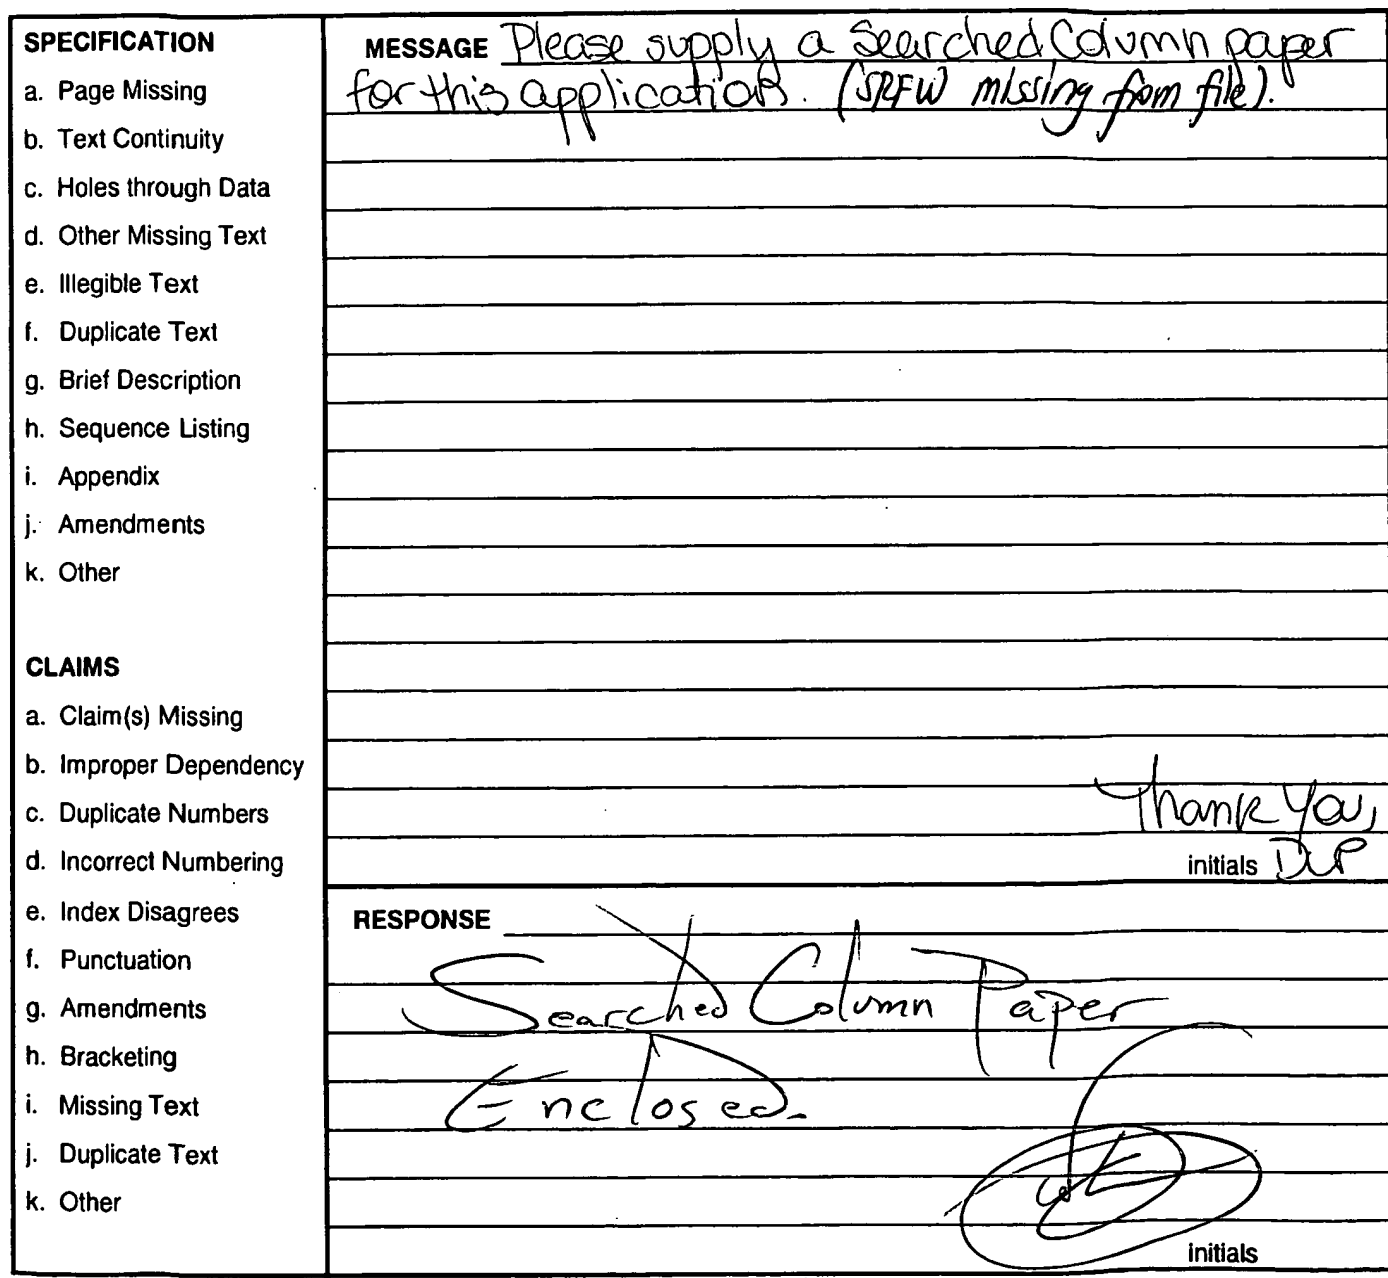 SPECIFICATION
a. Page Missing
b. Text Continuity
c. Holes through Data
d. Other Missing Text
e. Illegible Text
f. Duplicate Text
g. Brief Description
h. Sequence Listing
i. Appendix
j. Amendments
k. Other
CLAIMS
a. Claim(s) Missing
b. Improper Dependency
c. Duplicate Numbers
d. Incorrect Numbering
e. Index Disagrees
f. Punctuation
g. Amendments
h. Bracketing
i. Missing Text
j. Duplicate Text
k. Other
MESSAGE Please supply a Searched Column paper
for this application. (SRFW missing from file).
Thank You,
initials DCP
RESPONSE
Searched Column Paper
Enclosed.
initials